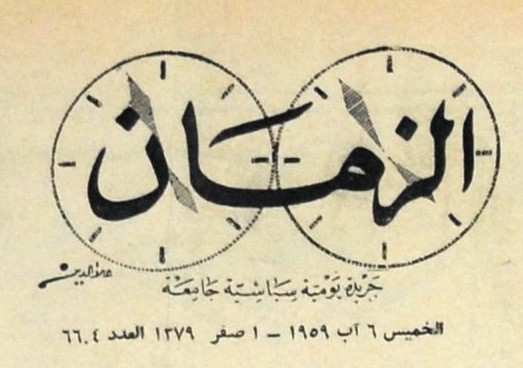 الزمان
علاء الدين
جريدة يومية سياسية جامعة
الخميس ٦ آب ١٩٥٩ - ١ صفر ١٣٧٩ العدد ٦٦٠٤